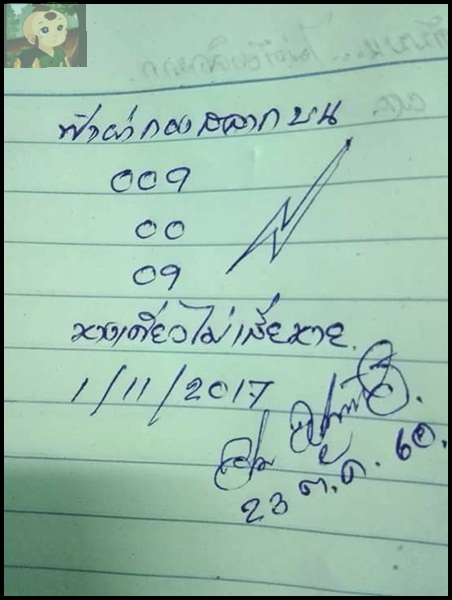 ฟ้าผ่ากองสลากบน
009
00
09
หางเดียวไม่เสียหาย.
1/11/2017
23 ต.ค. 60.